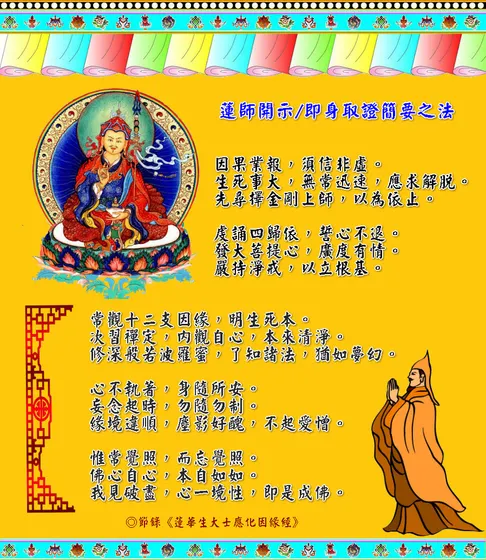 蓮師開示/即身取證簡要之法
因果業報，須信非虛。
生死事大，無常迅速，應求解脫。
先尋擇金剛上師，以為依止。
虔誦四歸依，誓心不退。
發大菩提心，廣度有情。
嚴持淨戒，以立根基。
常觀十二支因緣，明生死本。
次習禪定，內觀自心，本來清淨。
修深般若波羅蜜，了知諸法，猶如夢幻。
心不執著，身隨所安。
妄念起時，勿隨勿制。
緣境違順，塵影好醜，不起愛憎。
惟常覺照，而忘覺照。
佛心自心，本自如如。
我見破盡，心一境性，即是成佛。
◎節錄《蓮華生大士應化因緣經》